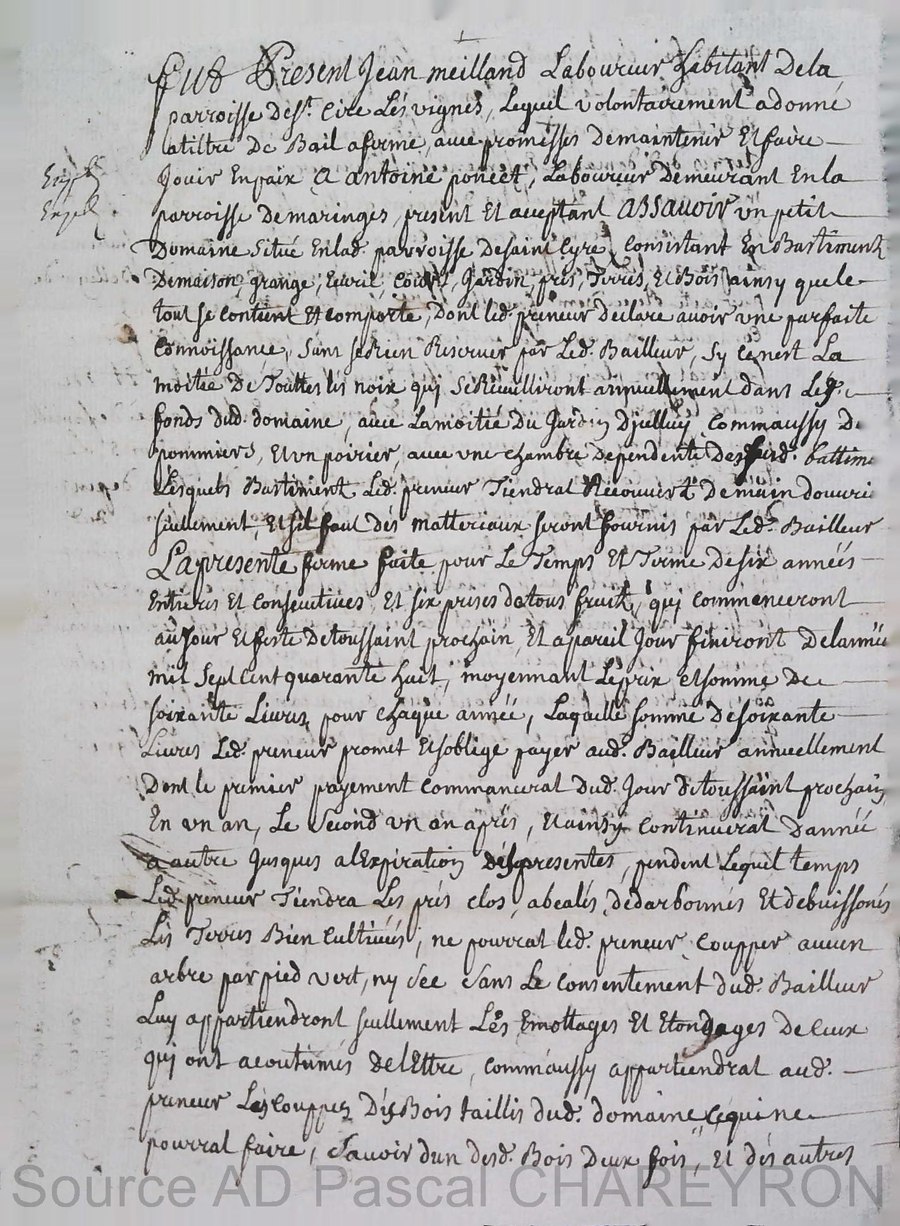 Fut Present Jean meilland Laboureur habitant De la
parroisse de st. Cire Les vignes, Lequel volontairement a donné
a tiltre De Bail a ferme, avec promesses De maintenir Et faire
Jouir En paix a antoine poncet, Laboureur Demeurant En la
parroisse de maringes, present Et aceptant assavoir un petit
Domaine Situé En lad. parroisse De saint Cyre, Consistant En Bastiments
De maison, grange, Eurie, Jardin, prés, Terres, Et Bois ainsy que le
tout se Contient Et comporte, Dont led. preneur declare avoir une parfaite
Connoissance, Sans se Rien Reserver par Led. Bailleur, sy Ce nest La
moitée De Touttes les noix qui se Recuilliront annuellement dans Les
fonds dud. domaine, avec La moitié Du Jardin Dyelluy, Comm aussy De
pommiers, Et un poirier, avec une chambre dependente desd. battim
Lesquels Bastiment Led. preneur Tiendrat Recouvert De main douvri
seullement, Et sil faut des matteriaux seront fournis par Led. Bailleur
La presente ferme faite pour Le Temps Et Terme de six années
Entieres Et Consecutives, Et six prises de tous fruits, qui Commenceront
au Jour Et feste de toussaint prochain, Et a pareil Jour finiront De lannée
mil Sept Cent quarante huit, moyennant Le prix Et somme De
soixante Livres, pour chaque année, Laquelle somme de soixante
Livres Led. preneur promet Et soblige payer aud. Bailleur annuellement
Dont le premier payement Commancerat Dud. Jour de toussaint prochain
En un an, Le Second un an apres, Et ainsy Continuerat Dannée
a autre Jusques a lExpiration des presentes, pendent Lequel temps
Led. preneur Tiendra Les prés clos, abealés, dedarbonnés Et debuissonés
Les Terres Bien Cultivées, ne pourrat led. preneur Coupper aucun
arbre par pied vert, ny sec sans Le Consentement dud. Bailleur
Luy appartiendront seullement Les Emottages Et Etondages De Ceux
qui ont acoutumés de lEttre, Comm aussy appartiendrat aud.
preneur Les Couppes Des Bois taillis dud. domaine, Ce qui ne
pourrat faire, Savoir dun desd. Bois Deux fois, Et dés autres
Source AD Pascal CHAREYRON